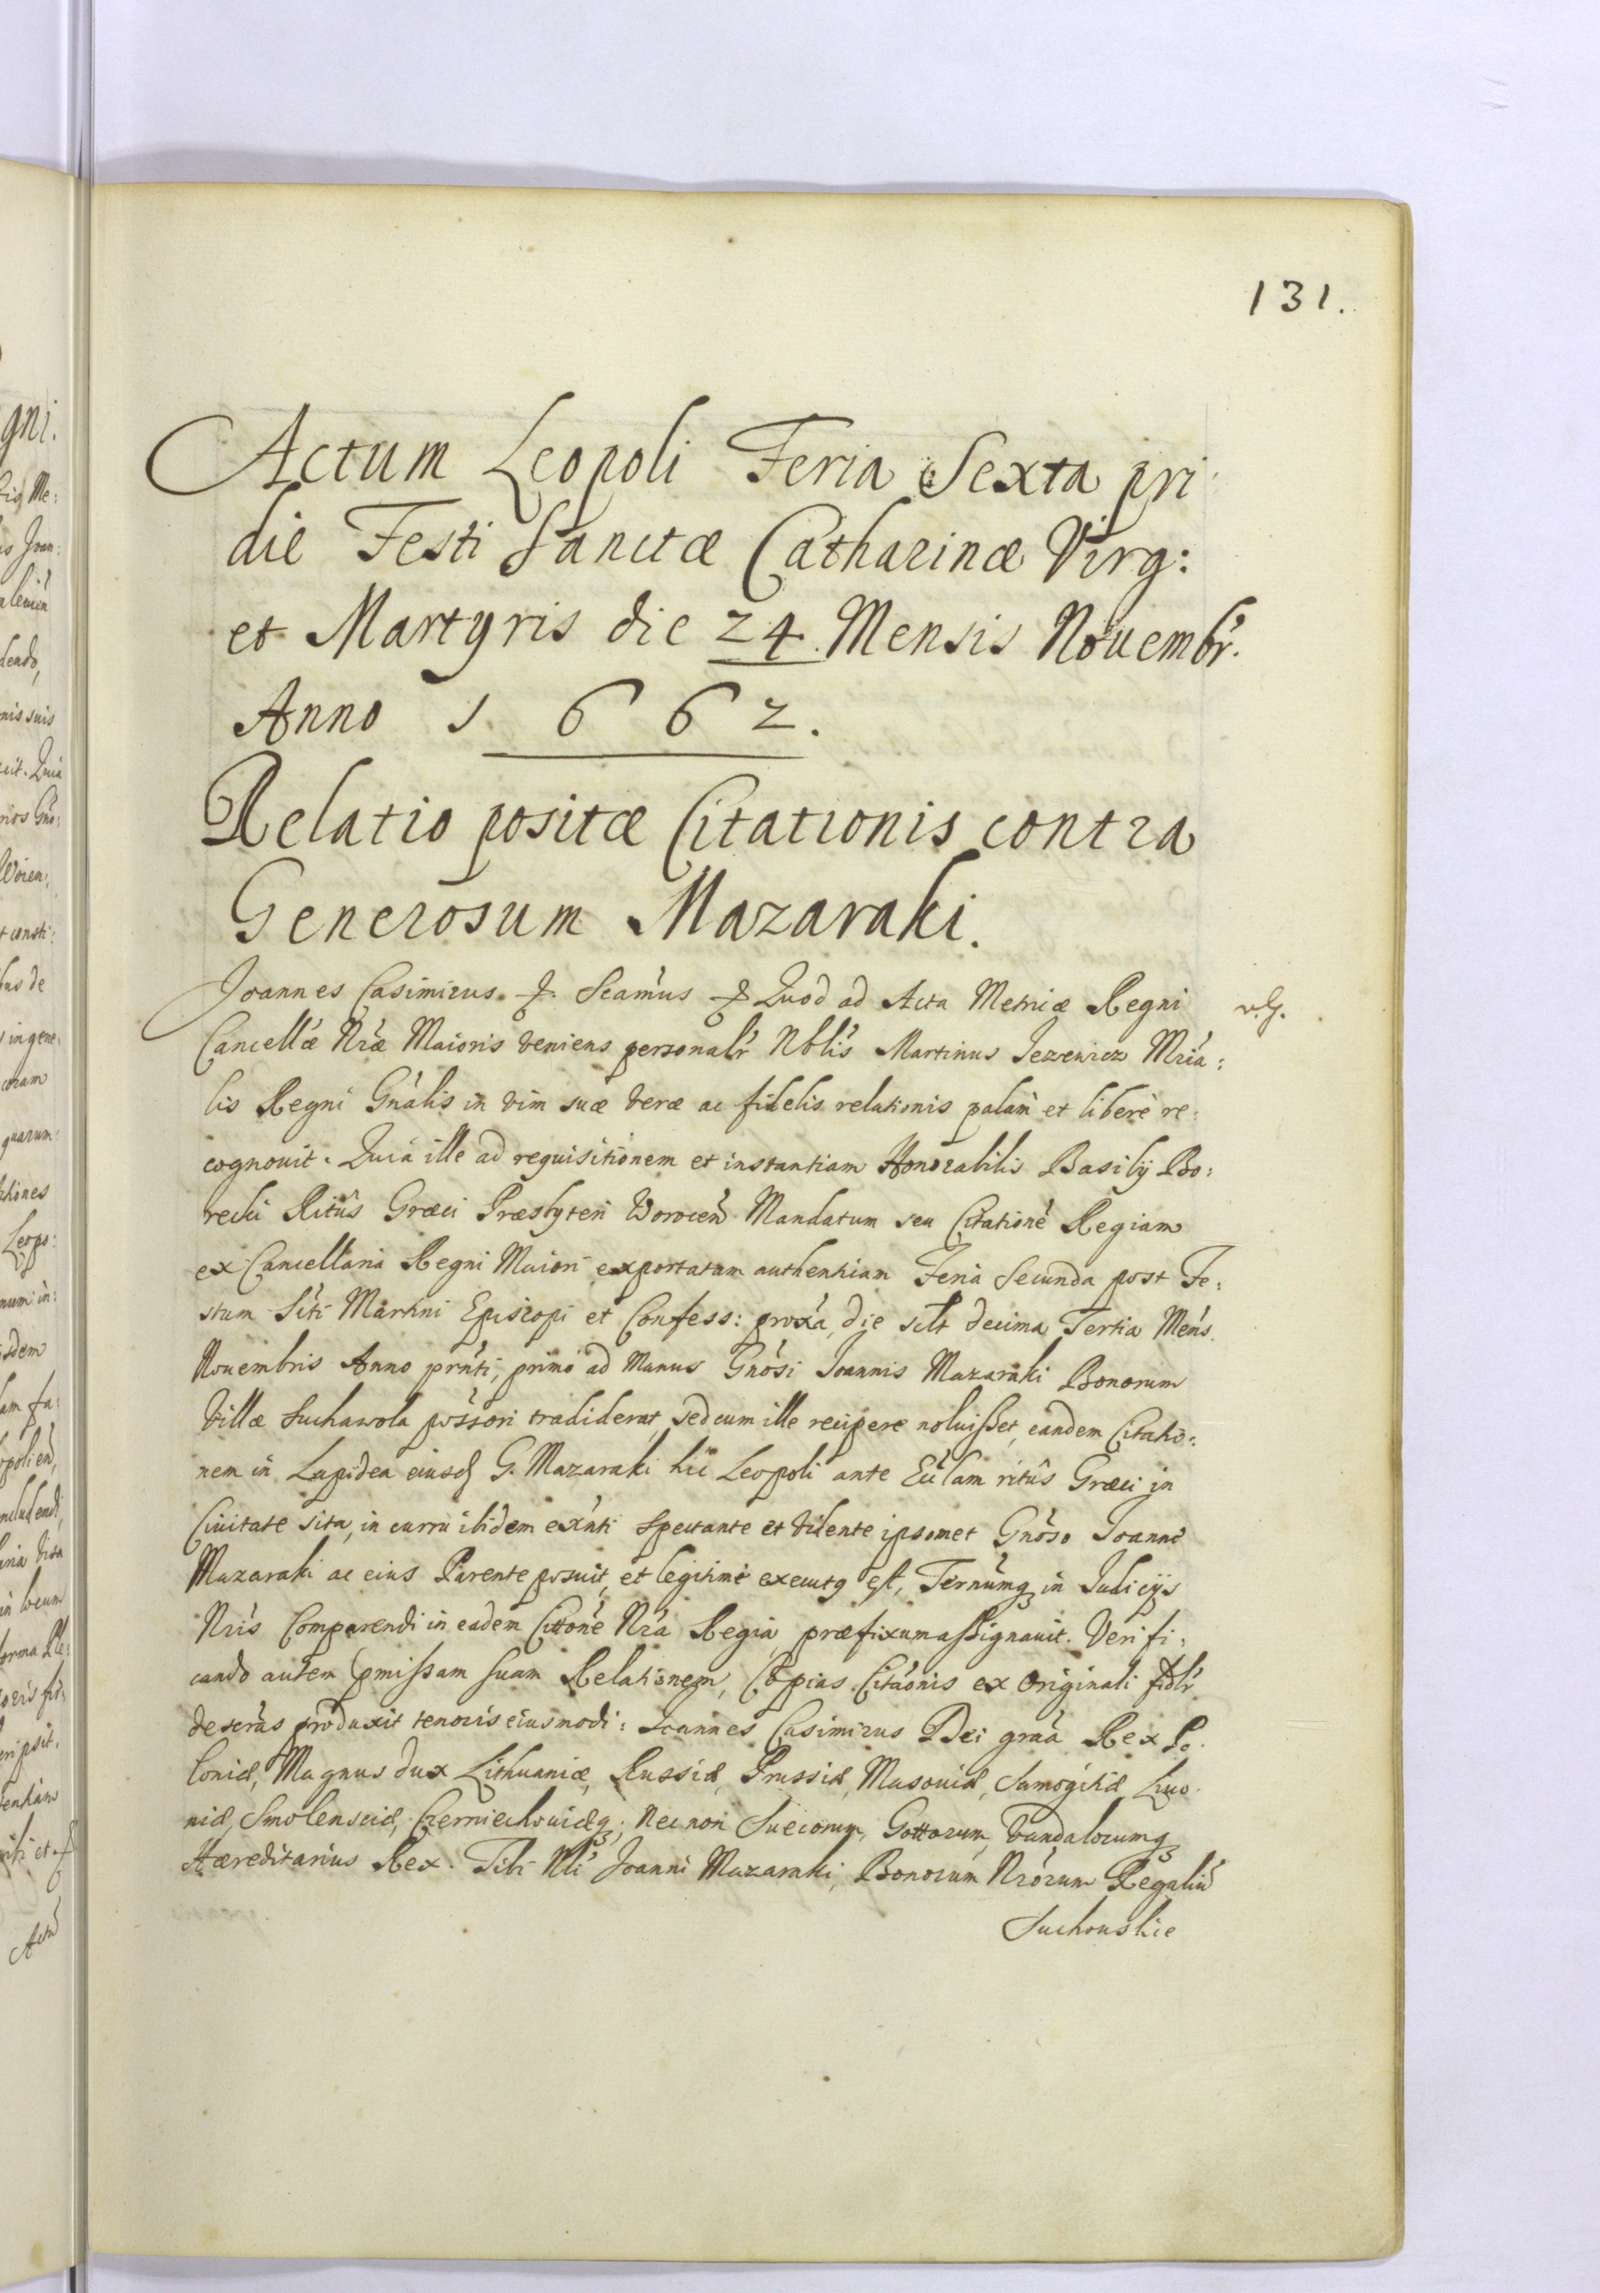 131.
Actum Leopoli Feria Sexta pri
die Festi Sanctæ Catharinæ Virg:
et Martyris die 24. Mensis Nouembr̃.
Anno 1662.
Relatio positæ Citationis contra
Generosum Mazaraki.
Joannes Casimirus Quod ad Acta Metricæ Regni
Cancellæ Nræ Maioris veniens personalr̃ Nblis Martinus Jezewicz Mria:
lis Regni Gnãlis in vim suæ veræ ac fidelis relationis palam et liberè re:
cognouit. Quia ille ad requisitionem et instantiam Honorabilis Basilij Bo:
recki Ritûs Græci Præsbyteri Worocen̄ Mandatum seu Citationẽ Regiam
ex Cancellaria Regni Maiori exportatam authenticam Feria Secunda post Fe:
stum Sti Martini Episcopi et Confess: proxa, die sclt decima Tertia Mens.
Nouembris Anno prnti, primo ad Manus Gnosi Joannis Mazaraki Bonorum
Villæ Suchawola possori tradiderat, sed cum ille recipere noluisset, eandem Citatio:
nem in Lapidea eiusd G. Mazaraki hic Leopoli ante Eclam ritûs Græci in
Ciuitate sita, in curru ibidem exnti spectante et vidente ipsomet Gnoso Joanne
Mazaraki ac eius Parente posuit, et legitimè executq est, Ternumq in Judicijs
Nris Comparendi in eadem Cittone Nra Regia præfixum assignauit. Verifi:
cando autem pmissam suam Relationem, Copias Citaonis ex Originali fidlr
descrãs produxit tenoris eiusmodi: Joannes Casimirus Dei graã Rex Po:
loniæ, Magnus dux Lithuaniæ, Russiæ, Prussiæ, Masouiæ, Samogitiæ, Liuo:
niæ, Smolensciæ, Czerniechouiæq; Nec non Suecorum, Gottorum, Vandalorumq
Hæreditarius Rex. Tibi Nli Joanni Mazaraki, Bonorum Nrorum Regaliũ
Suchouskie